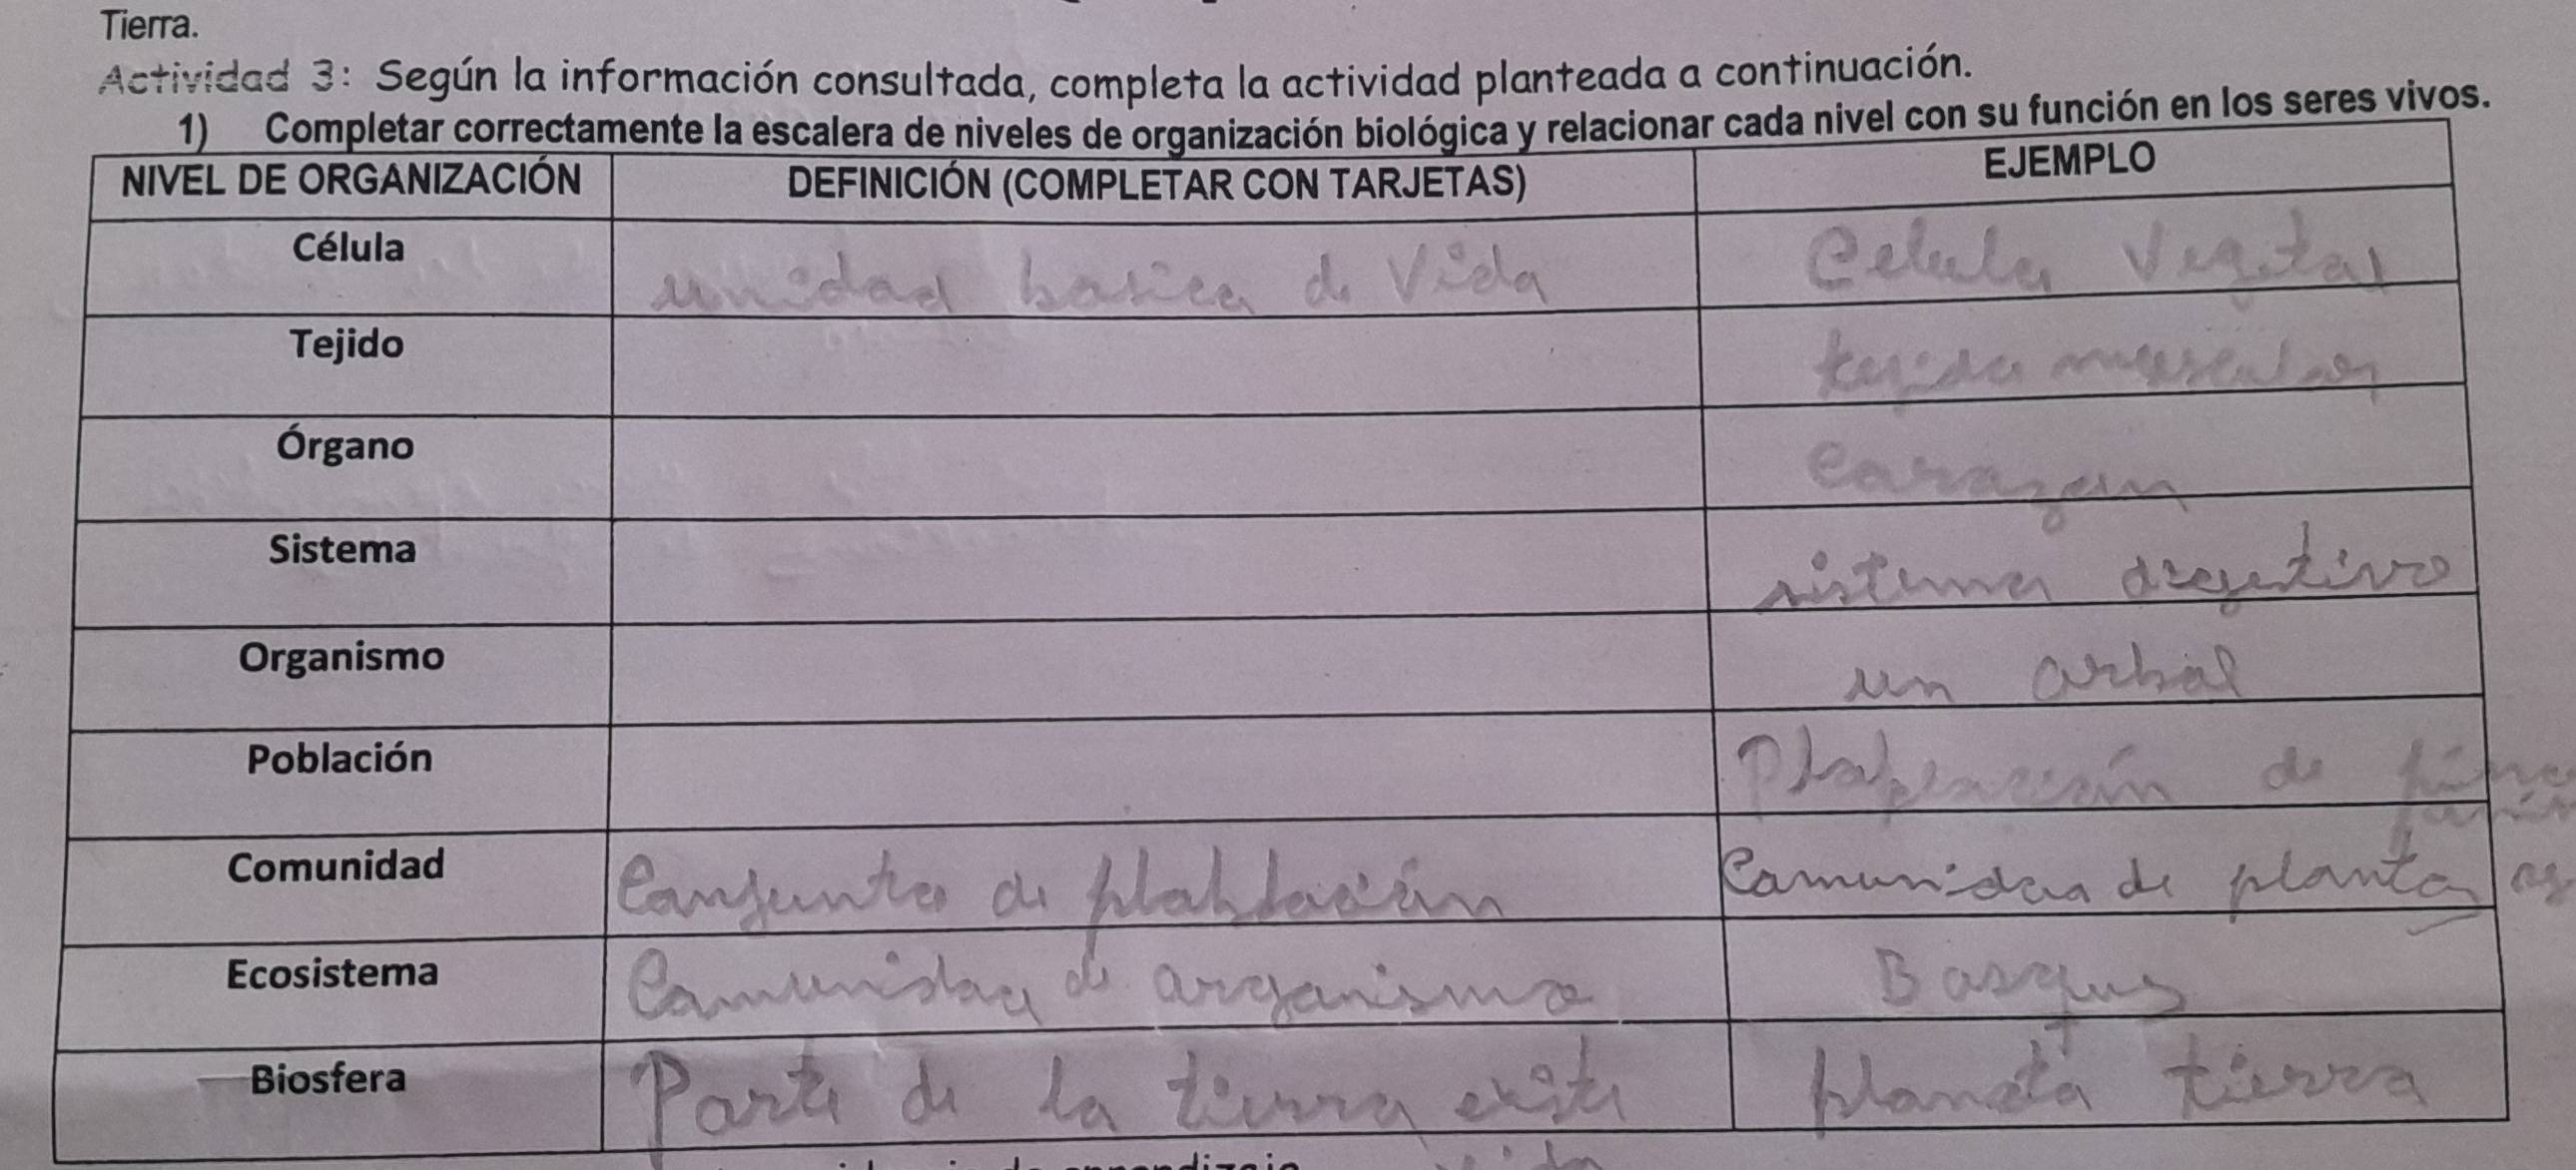 Tierra.
Actividad 3: Según la información consultada, completa la actividad planteada a continuación.
1) Completar correctamente la escalera de niveles de organización biológica y relacionar cada nivel con su función en los seres vivos.
NIVEL DE ORGANIZACIÓN DEFINICIÓN (COMPLETAR CON TARJETAS) EJEMPLO
Célula unidad basica de Vida Celula Vegetal
Tejido tejido muscular
Órgano Corazon
Sistema sistema digestivo
Organismo un arbol
Población de
Comunidad Conjunto de Comunidad de plantas
Ecosistema Comunidad de organismo Bosque
Biosfera Parte de la tierra existe planeta tierra
vida